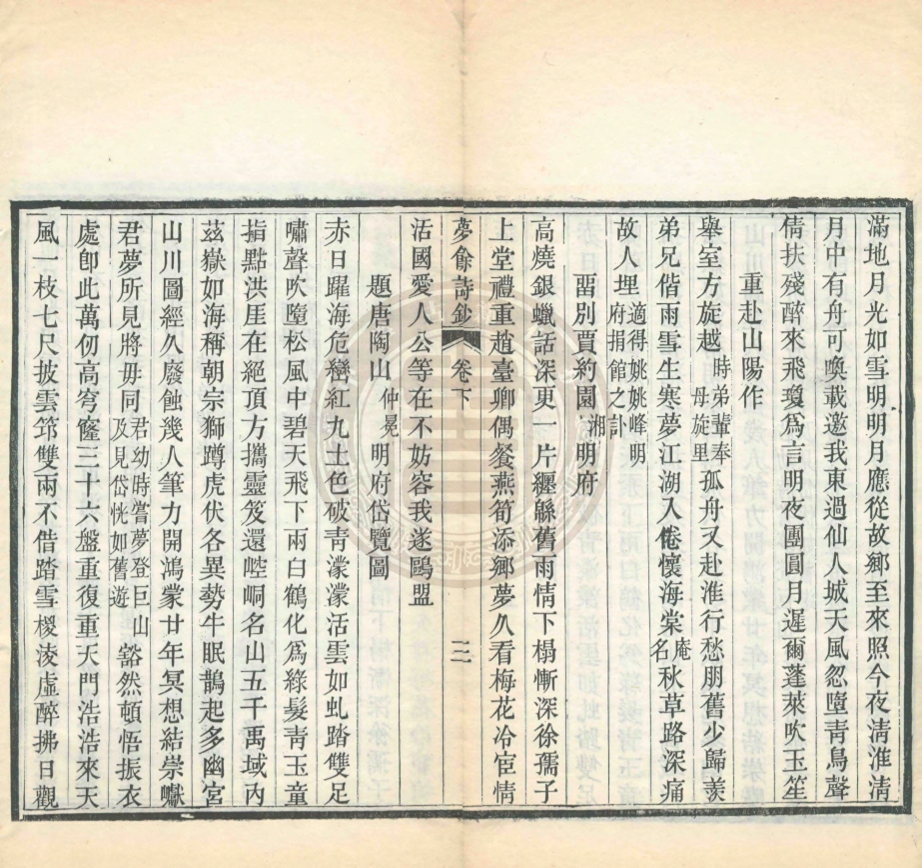 滿地月光如雪明明月應從故鄉至來照今夜淸淮淸
月中有舟可喚載邀我東過仙人城天風忽墮青鳥聲
倩扶殘醉來飛瓊爲言明夜團圓月遲爾蓬萊吹玉笙
重赴山陽作
舉室方旋越時弟輩奉母旋里孤舟又赴淮行愁朋舊少歸羨
弟兄偕雨雪生寒夢江湖入倦懷海棠庵名秋草路深痛
故人埋適得姚姚峰明府捐館之訃
畱別賈約園湘明府
高燒銀蠟話深更一片纏緜舊雨情下榻慚深徐孺子
上堂禮重趙臺卿偶餐燕筍添鄉夢久看梅花冷宦情
夢餘詩鈔 卷下 二
活國愛人公等在不妨容我遂鷗盟
題唐陶山仲冕明府岱覽圖
赤日躍海危巒紅九土色破青濛濛活雲如虬踏雙足
嘯聲吹墮松風中碧天飛下兩白鶴化爲綠髮青玉童
指點洪厓在絕頂方攜靈笈還崆峒名山五千禹域內
茲嶽如海稱朝宗獅蹲虎伏各異勢牛眠鵲起多幽宮
山川圖經久廢蝕幾人筆力開鴻蒙廿年冥想結崇巘
君夢所見將毋同君幼時嘗夢登巨山及見岱恍如舊遊豁然頓悟振衣
處卽此萬仞高穹窿三十六盤重復重天門浩浩來天
風一枝七尺披雲筇雙兩不借踏雪椶淩虛醉拂日觀